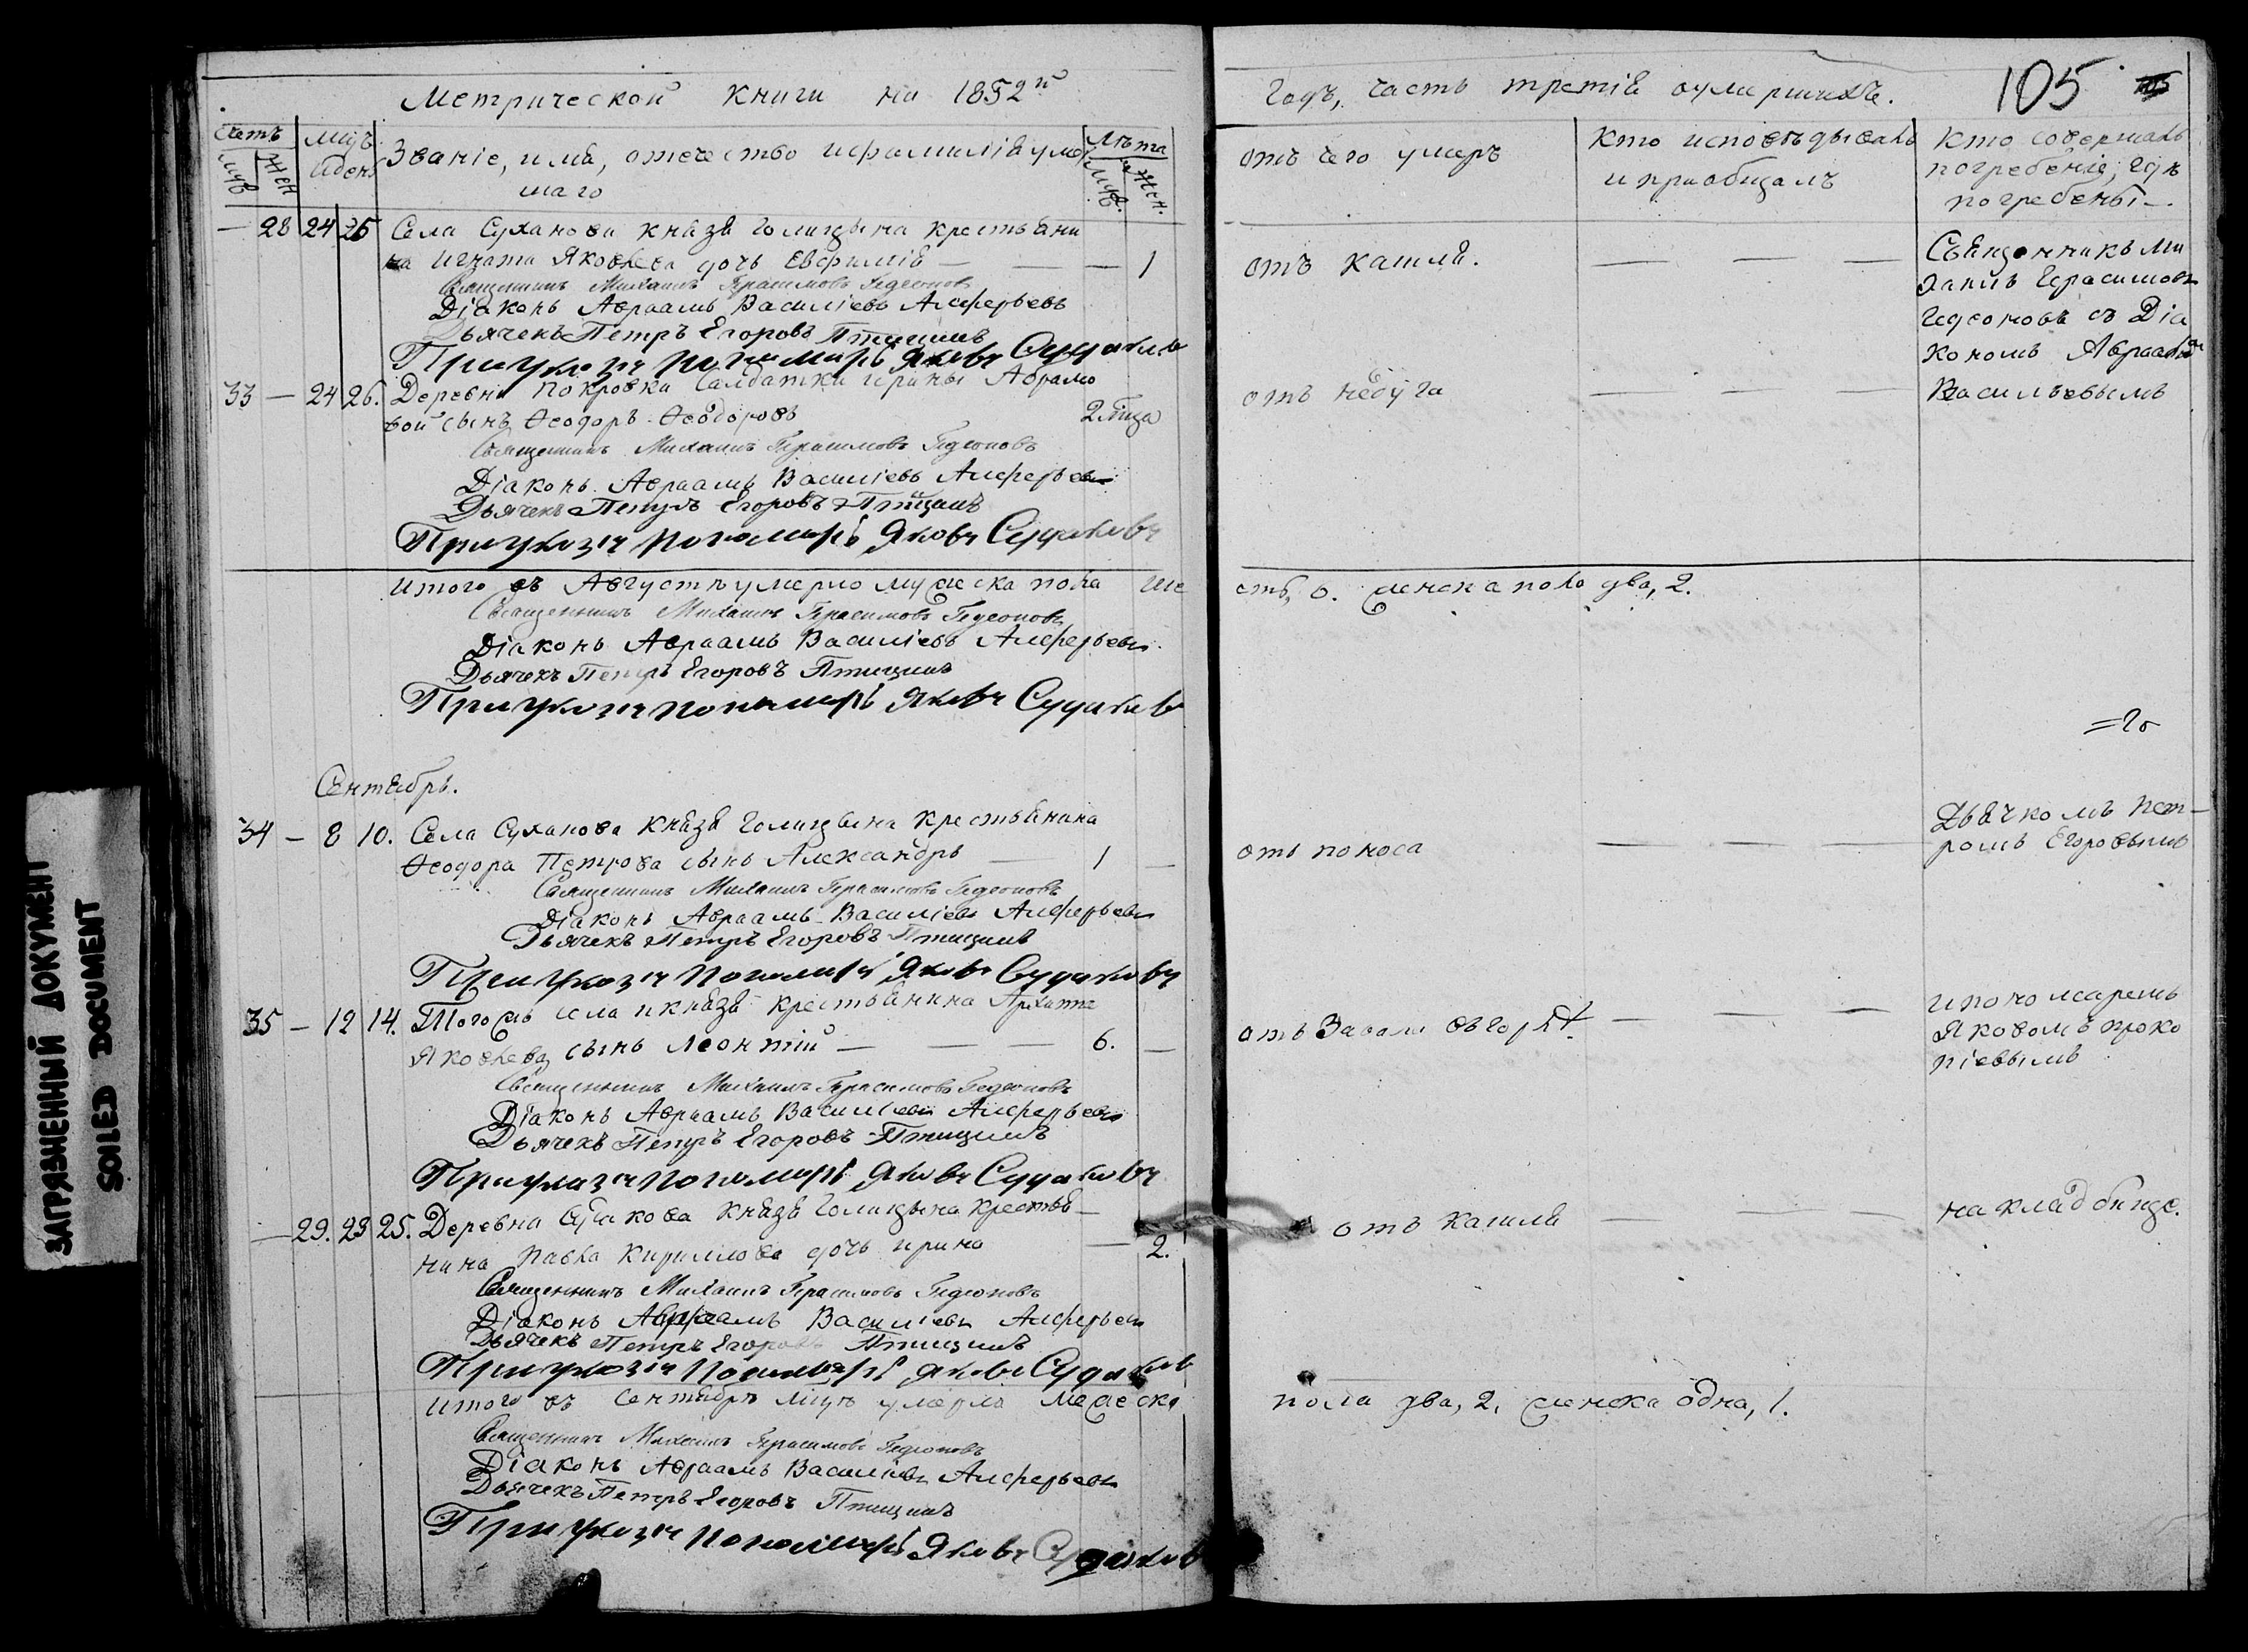 Метрической книги на 1852й
Счетъ
муж
Жен
Мцъ
и день
Званіе, имя, отечество и фамилія умер
шаго
Лѣта
муж.
жен.
— 28 24 26 Села Суханова князя Голицына крестьяни
на Игната Яковлева дочь Евфимія — — — 1
Священникъ Михаилъ Герасимовъ Гедеоновъ
Діаконъ Авраамъ Василіевъ Алферьевъ
Дьячекъ Петръ Егоровъ Птицынъ
Причюкозіи пономарь Яковъ Судаковъ
33 — 24 26. Деревни Покровки Салдатки Ирины Абрамо
вой сынъ Ѳеодоръ Ѳеодоровъ 2 мца
Священникъ Михаилъ Герасимовъ Гедеоновъ
Діаконъ Авраамъ Василіевъ Алферьевъ
Дьячекъ Петръ Егоровъ Птицынъ
пономарь Яковъ Судаковъ
итого въ Августѣ умерло мужеска пола ше
Священникъ Михаилъ Герасимовъ Гедеоновъ
Діаконъ Авраамъ Василіевъ Алферьевъ
Дьячекъ Петръ Егоровъ Птицынъ
пономарь Яковъ Судаковъ
Сентябрь.
34 — 8 10. Села Суханова Князя Голицына крестьянина
Ѳеодора Петрова сынъ Александръ — 1 —
Священникъ Михаилъ Герасимовъ Гедеоновъ
Діаконъ Авраамъ Василіевъ Алферьевъ
Дьячекъ Петръ Егоровъ Птицынъ
пономарь Яковъ Судаковъ
35 — 12 14. Тогожъ села и князя крестьянина Архипа
Яковлева сынъ Леонтій — — — 6. —
Священникъ Михаилъ Герасимовъ Гедеоновъ
Діаконъ Авраамъ Василіевъ Алферьевъ
Дьячекъ Петръ Егоровъ Птицынъ
пономарь Яковъ Судаковъ
— 29. 23 25. Деревни князя Голицына крестья-
нина Павла Кириллова дочь Ирина — 2.
Священникъ Михаилъ Герасимовъ Гедеоновъ
Діаконъ Авраамъ Василіевъ Алферьевъ
Дьячекъ Петръ Егоровъ Птицынъ
пономарь Яковъ Судаковъ
итого въ Сентябрѣ мцѣ умерло мужеска
Священникъ Михаилъ Герасимовъ Гедеоновъ
Діаконъ Авраамъ Василіевъ Алферьевъ
Дьячекъ Петръ Егоровъ Птицынъ
пономарь Яковъ Судаковъ
Годъ, часть третія оумершихъ. 105
отъ чего умеръ
Кто исповѣдывалъ
и приобщалъ
Кто совершалъ
погребеніе, гдѣ
погребены
отъ кашля. — — —
Священникъ Ми
хаилъ Герасимовъ
Гедеоновъ съ Діа
кономъ Авраамом
отъ недуга — — —
Васильевымъ
стъ, 6. женска поло два, 2.
Дьячкомъ Пет-
ромъ Егоровымъ
отъ поноса — — —
и пономаремъ
Яковомъ Проко
піевымъ
отъ — — —
отъ кашля — — —
на кладбище.
пола два, 2, женска одна, 1.
ЗАГРЯЗНЕННЫЙ ДОКУМЕНТ
SOILED DOCUMENT